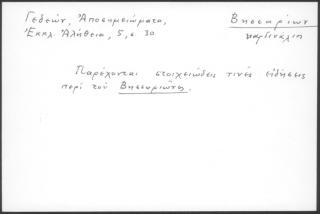 Γεδεών, Ἀποσημειώματα,
Ἐκκλ. Ἀλήθεια, 5, σ. 30
Βησσαρίων
καρδινάλιος
Παρέχονται στοιχειώδεις τινές εἰδήσεις
περί τοῦ Βησσαριῶνος.